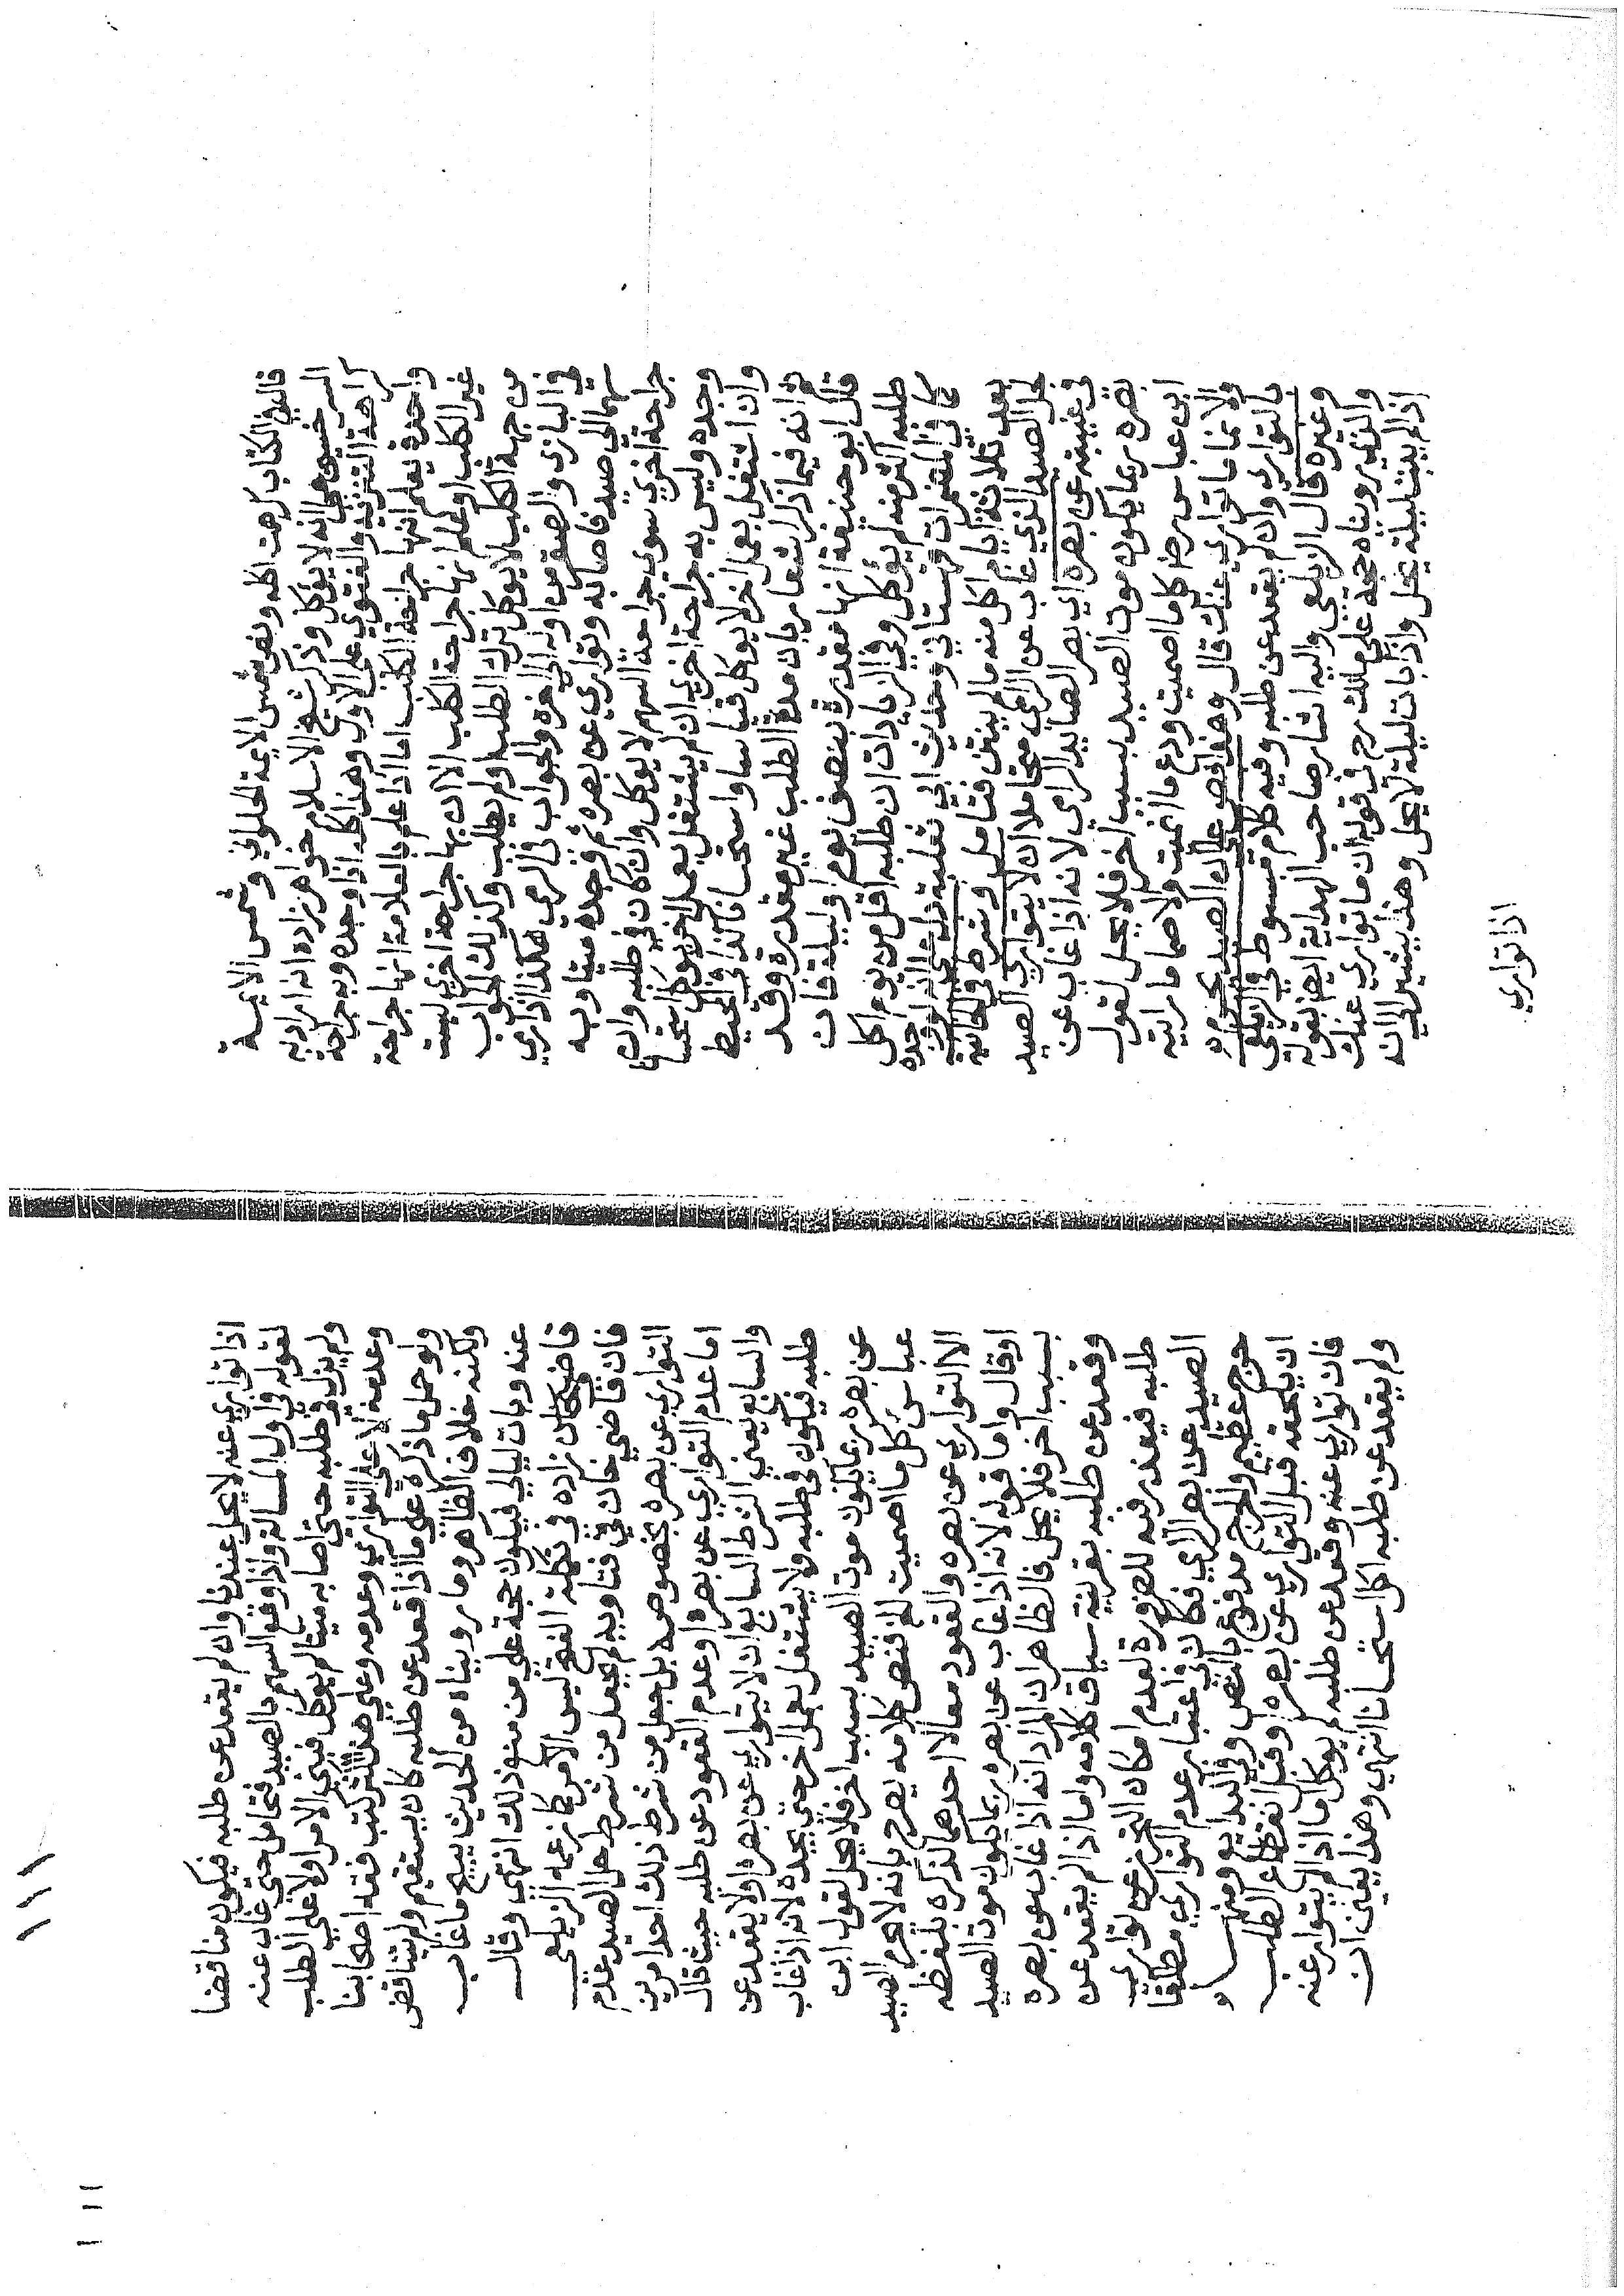 قال في الكتاب كرهت اكله ونص شمس الايمة الحلواني وشمس الايمة
السرخسي علي انه لا يوكل وذكر شيخ الاسلام خواهر زاده انه اراد به
كراهة التنزيه والفتوي علي الاول وهذا كله اذا وجده وبه جراحة
واحدة يعلم انها جراحة الكلب اما اذا علم بالعلامة انها جراحة
غير الكلب او علم انها جراحة الكلب الا ان بها جراحة اخري ليست
من جهة الكلب لا يوكل ترك الطلب او لم يطلب وكذلك الجواب
في البازي والصقر من اوله الي اخره والجواب في الرمي هكذا اذا رمي
سهما الي صيد فاصابه وتواري عن بصره ثم وجده ميتا وبه
جراحة اخري سوي جراحة السهم لا يوكل وان كان في طلبه وان
وجده وليس به جراحة اخري ان لم يشتغل بعمل اخر يوكل استحسانا
وان اشتغل بعمل اخر لا يوكل قياسا واستحسانا كذا في المحيط
ثم انه فيما ذكر اشعار بان مدة الطلب غير مقدرة وقد
قال ابو حنيفة انها مقدرة بنصف يوم او ليلة فان
طلبه اكثر منه لم يؤكل وفي الزيادات ان طلبه اقل من يوم اكل
كما في المضمرات قهستاني وحديث ابي ثعلبة دل علي انه لو وجده
بعد ثلاثة ايام اكل منه ما لم ينتن فتامل وشرط في الخانية
لحل الصيد الذي غاب عن الرامي متحاملا ان لا يتواري الصيد
في غيبته عن بصره اي بصر الصايد الرامي لانه اذا غاب عن
بصره ربما يكون موت الصيد بسبب اخر فلا يحل لقول
ابن عباس رضه كل ما اصميت ودع ما انميت والاصما ما رايته
والانما ما تواري عنك قال وهذا نص علي ان الصيد يحرم
بالتواري وان لم يقعد عن طلبه وفيه كلام مبسوط في الزيلعي
وغيره قال الزيلعي واليه اشار صاحب الهداية ايضا بقوله
والذي رويناه حجة علي ملك رح في قوله ان ما تواري عنك
اذا لم يبت ليلة يحل واذا بات ليلة لا يحل وهذا يشير الي ان
اذا تواري
١١١
اذا تواري عنه لا يحل عندنا وان لم يقعد عن طلبه فيكون مناقضا
لقوله في اول المسالة واذا وقع السهم بالصيد فتحامل حتي غاب عنه
ولم يزل في طلبه حتي اصابه ميتا لم يوكل فبني الامر اولا علي الطلب
وعدمه لا علي التواري وعدمه وعلي هذا اكثر كتب فقه اصحابنا
ولو حمل ما ذكره علي ما اذا قعد عن طلبه كان يستقيم ولم يتناقض
ولكنه خلاف الظاهر وما رويناه من الحديث يبيح ما غاب
عنه وبات ليالي فيكون حجة علي من منع ذلك انتهي وقال
قاضي زاده في تكملة الفتح ليس الامر كما زعمه الزيلعي
فان قاضي خان في فتاويه لم يجعل من شرط حل الصيد عدم
التواري عن بصره بخصوصه بل جعل من شرط ذلك احد امرين
اما عدم التواري عن بصره او عدم القعود عن طلبه حيث قال
والسابع يعني الشرط السابع ان لا يتواري عن بصره او لا يقعد عن
طلبه فيكون في طلبه ولا يشتغل بعمل اخر حتي يجده لانه اذا غاب
عن بصره ربما يكون موت الصيد بسبب اخر فلا يحل لقول ابن
عباس كل ما اصميت الخ فنص كلامه يصرح بانه لا يحرم الصيد
الا التواري عن بصره والقعود معا لا احدهما لذكره بلفظه
او قال واما قوله لانه اذا غاب عن بصره ربما يكون موت الصيد
بسبب اخر فلا يحل فالظاهر ان المراد انه اذا غاب عن بصره
وقعد عن طلبه بقرينة سياق كلامه واما اذا لم يقعد عن
طلبه فيعذر فيه للضرورة لعدم امكان التحرز عن تواري
الصيد عن بصر الرامي فكان في اعتبار عدم التواري مطلقا
حرج عظيم والحرج مدفوع بالنص وفي البدايع ومنها
ان يلحقه قبل التواري عن بصره او قبل انقطاع الطلب
فان تواري عنه وقعد عن طلبه لم يوكل اما اذا لم يتوار عنه
ولم يقعد عن طلبه اكل استحسانا انتهي وهذا يعني ان